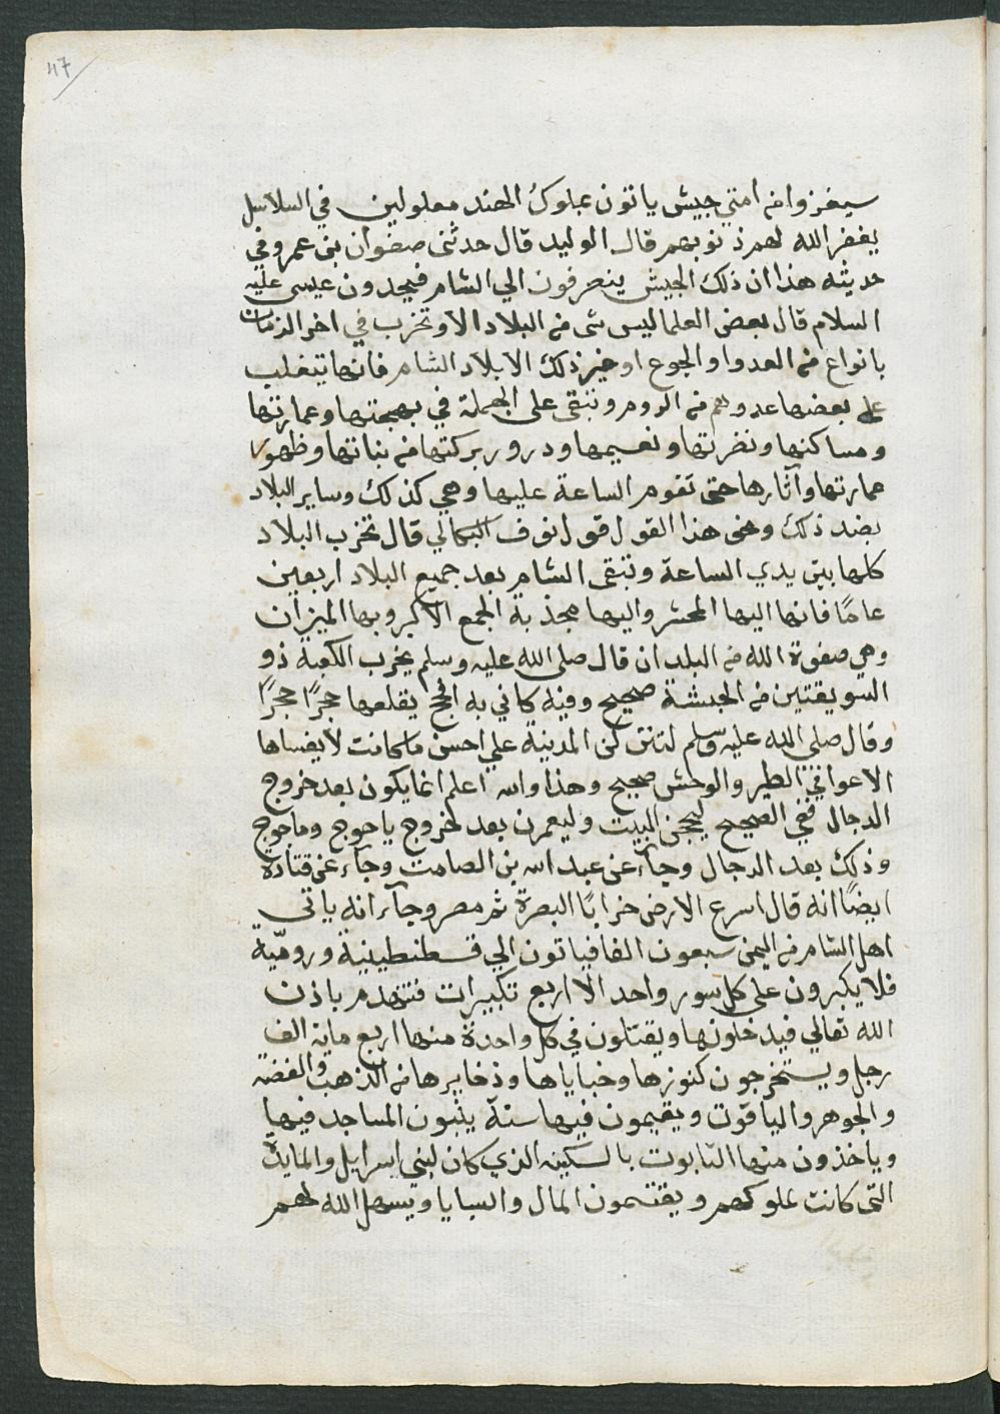 47
سيغزوا من امتي جيش ياتون بملوك الهند مغلولين في السلاسل
يغفر الله لهم ذنوبهم قال الوليد قال حدثنى صفوان بن عمرو في
حديثه هذا ان ذلك الجيش ينصرفون الي الشام فيجدون عيسى عليه
السلام قال بعض العلما ليس شى من البلاد الا وتخرب في اخر الزمان
بانواع من العدو او الجوع او غير ذلك الا بلاد الشام فانها يتغلب
على بعضها عدوهم من الروم وتبقى على الجملة في بهجتها وعمارتها
ومساكنها ونضرتها ونعيمها ودرور بركتها من نباتها وظهور
عمارتها وآثارها حتى تقوم الساعة عليها وهي كذلك وساير البلاد
بضد ذلك وهذا القول قول نوف البكالي قال تخرب البلاد
كلها بين يدي الساعة وتبقى الشام بعد جميع البلاد اربعين
عامًا فانها اليها المحشر واليها مجذبة الجمع الاكبر وبها الميزان
وهي صفوة الله من البلدان قال صلى الله عليه وسلم يخرب الكعبة ذو
السويقتين من الحبشة صحيح وفيه كاني به افحج يقلعها حجرًا حجرًا
وقال صلى الله عليه وسلم لتتركن المدينة علي احسن ما كانت لا يغشاها
الا عوافي الطير والوحش صحيح وهذا والله اعلم انما يكون بعد خروج
الدجال ففي الصحيح ليحجن البيت وليعمرن بعد خروج ياجوج وماجوج
وذلك بعد الدجال وجآء عن عبد الله بن الصامت وجآء عن قتادة
ايضًا انه قال اسرع الارض خرابًا البصرة ثم مصر وجآء انه ياتي
اهل الشام من اليمن سبعون الفا فياتون الي قسطنطينية وروميّة
فلا يكبرون على كل سور واحد الا اربع تكبيرات فتهدم باذن
الله تعالي فيدخلونها ويقتلون في كل واحدة منها اربع ماية الف
رجل ويستخرجون كنوزها وخباياها وذخايرها من الذهب والفضة
والجوهر والياقوت ويقيمون فيها سنة يبنون المساجد فيها
وياخذون منها التابوت بالسكينة الذي كان لبني اسرايل والمايدة
التى كانت لملوكهم ويقتسمون المال والسبايا ويسهل الله لهم